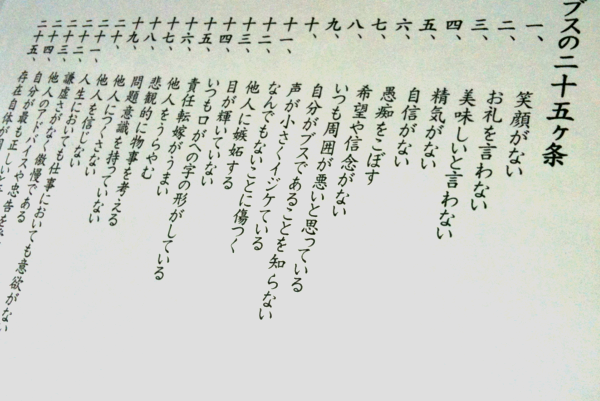 ブスの二十五ヶ条
一、笑顔がない
二、お礼を言わない
三、美味しいと言わない
四、精気がない
五、自信がない
六、愚痴をこぼす
七、希望や信念がない
八、いつも周囲が悪いと思っている
九、自分がブスであることを知らない
十、声が小さくイジケている
十一、なんでもないことに傷つく
十二、他人に嫉妬する
十三、目が輝いていない
十四、いつも口がへの字の形がしている
十五、責任転嫁がうまい
十六、他人をうらやむ
十七、悲観的に物事を考える
十八、問題意識を持っていない
十九、他人につくさない
二十、他人を信じない
二十一、人生においても仕事においても意欲がない
二十二、謙虚さがなく傲慢である
二十三、他人のアドバイスや忠告を
二十四、自分が最も正しいと
二十五、存在自体が